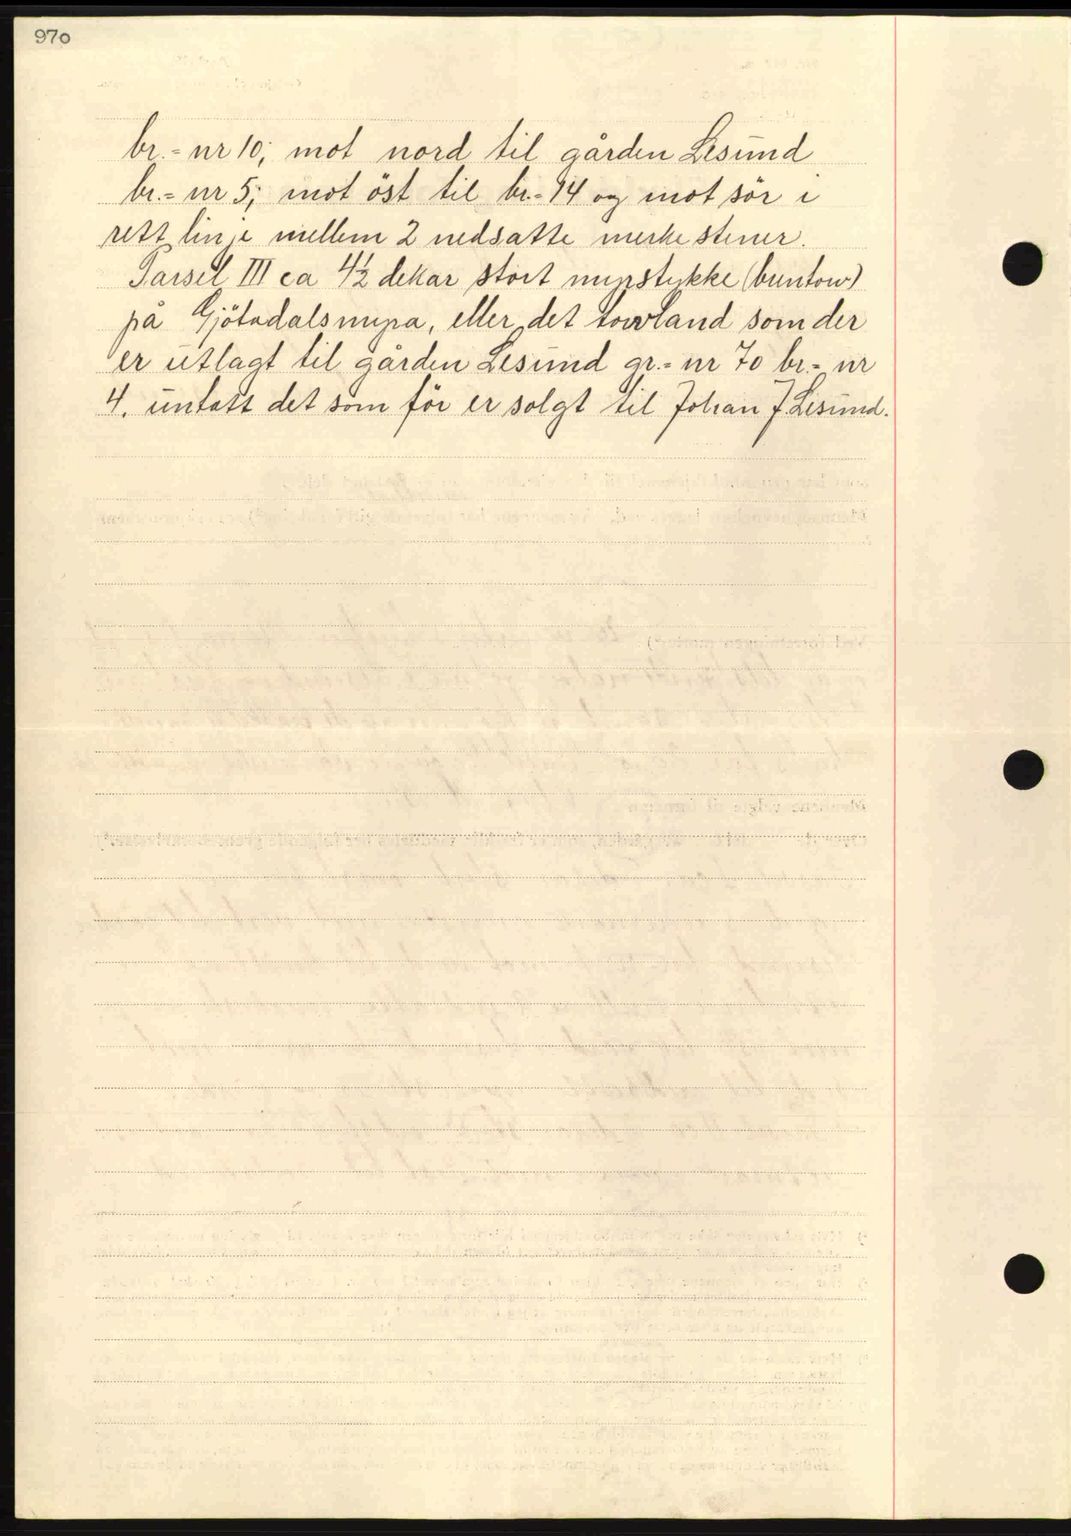 970
br.= nr 10; mot nord til gården Lesund
br.= nr 5; mot öst til br.= 14 og mot sör i
rett linje mellem 2 nedsatte merkestener.
Parsel III ca 4½ dekar stort myrstykke (bruntorv)
på Gjötadalsmyra, eller det torvland som der
er utlagt til gården Lesund gr.= nr 70 br.= nr
4. untatt det som för er solgt til Johan J. Lesund.